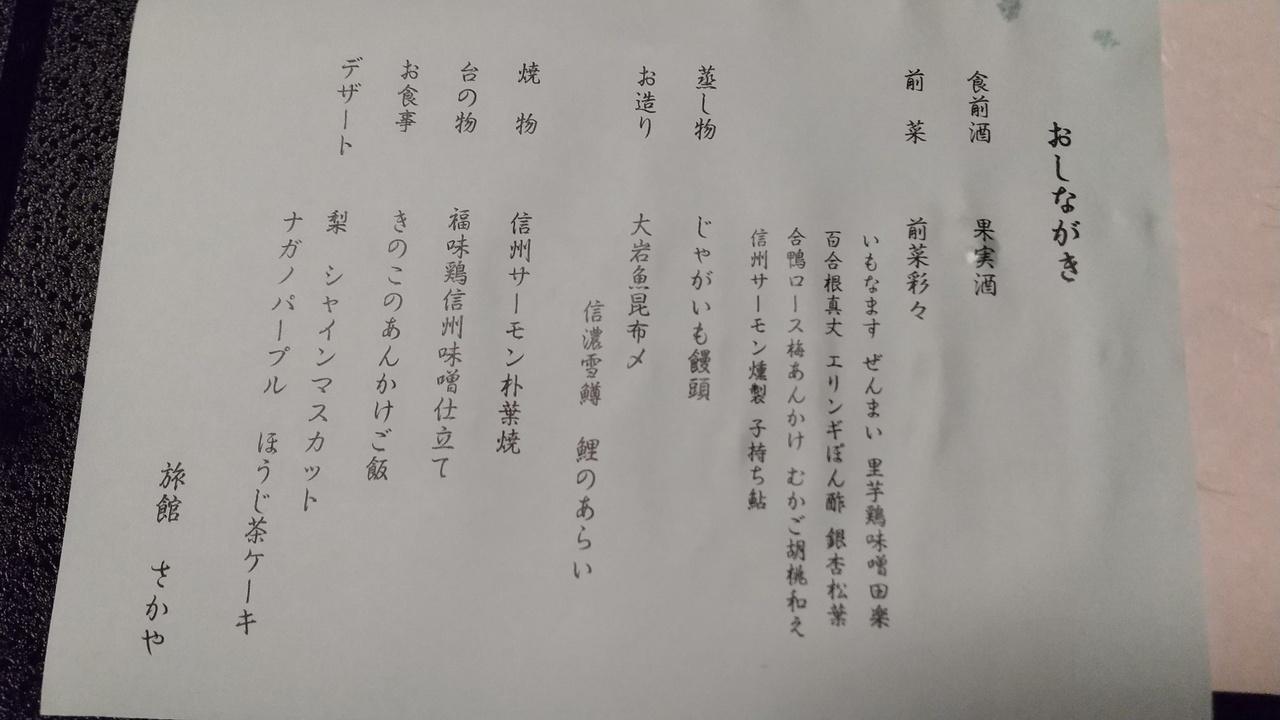 おしながき
食前酒　果実酒
前　菜　前菜彩々
いもなます　ぜんまい　里芋鶏味噌田楽
百合根真丈　エリンギぽん酢　銀杏松葉
合鴨ロース梅あんかけ　むかご胡桃和え
信州サーモン燻製　子持ち鮎
蒸し物　じゃがいも饅頭
お造り　大岩魚昆布〆
信濃雪鱒　鯉のあらい
焼　物　信州サーモン朴葉焼
台の物　福味鶏信州味噌仕立て
お食事　きのこのあんかけご飯
デザート　梨　シャインマスカット
ナガノパープル　ほうじ茶ケーキ
旅館　さかや